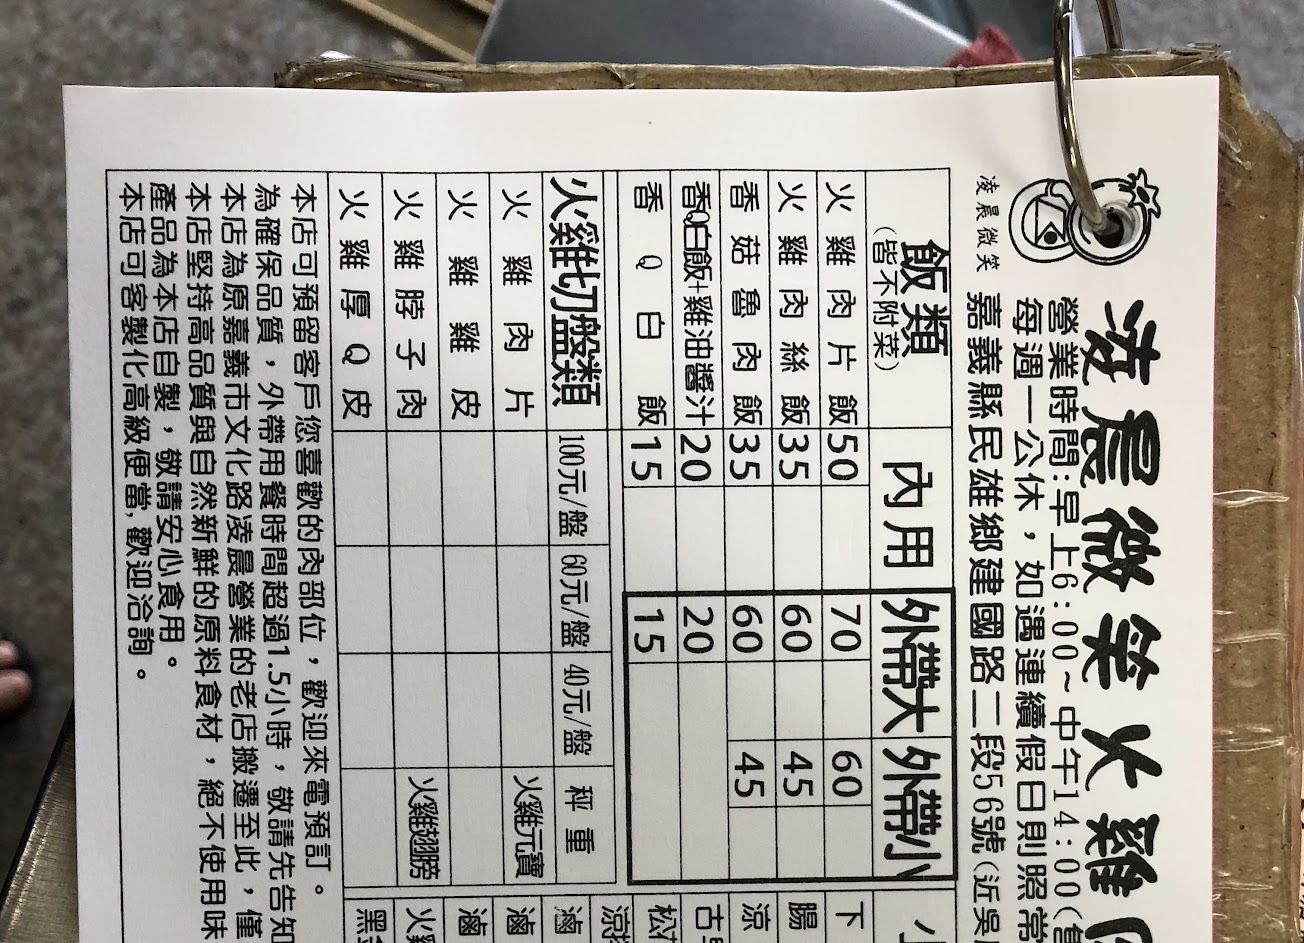 凌晨微笑
凌晨微笑火雞
營業時間:早上6:00~中午14:00(
每週一公休，如遇連續假日則照常
嘉義縣民雄鄉建國路二段56號(近吳
飯類(皆不附菜) 內用 外帶大 外帶小
火雞肉片飯 50 70 60
火雞肉絲飯 35 60 45
香菇魯肉飯 35 60 45
香Q白飯+雞油醬汁 20 20
香Q白飯 15 15
火雞切盤類 100元/盤 60元/盤 40元/盤 秤重
火雞肉片 火雞元寶
火雞雞皮
火雞脖子肉 火雞翅膀
火雞厚Q皮
本店可預留客戶您喜歡的肉部位，歡迎來電預訂。
為確保品質，外帶用餐時間超過1.5小時，敬請先告知
本店為原嘉義市文化路凌晨營業的老店搬遷至此，僅
本店堅持高品質與自然新鮮的原料食材，絕不使用味
產品為本店自製，敬請安心食用。
本店可客製化高級便當，歡迎洽詢。
下
腸
涼
古
松
涼
滷
滷
滷
火
黑